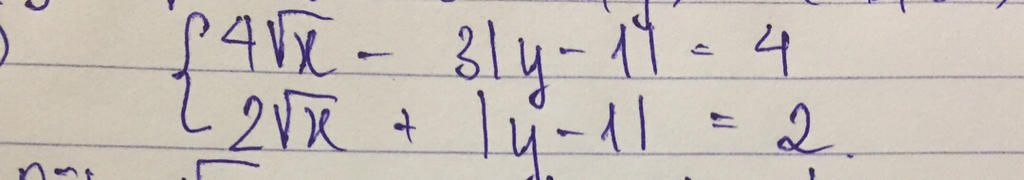 4√x - 3|y-1| = 4
2√x + |y-1| = 2.